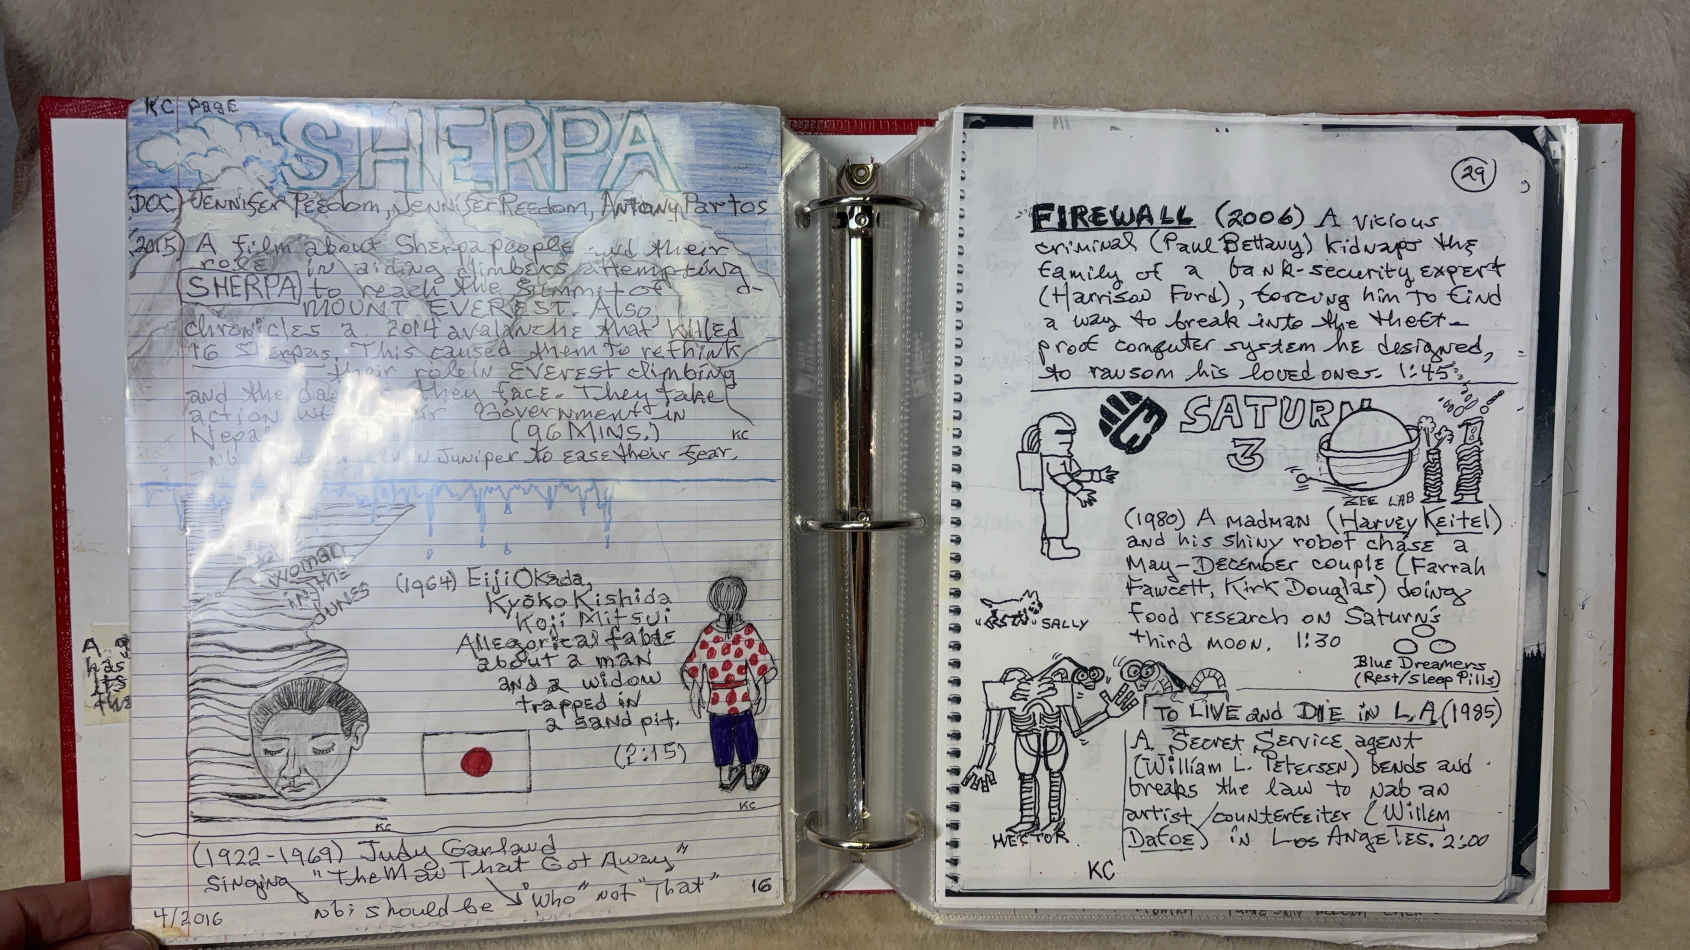 KC Page
SHERPA
(DOC) Jennifer Peedom, Jennifer Peedom, Antony Partos
(2015) A film about Sherpa people and their
role in aiding climbers attempting
SHERPA to reach the summit of a-
MOUNT EVEREST. Also
chronicles a 2014 avalanche that killed
16 Sherpas. This caused them to rethink
their role in EVEREST climbing
and the they face. They take
action Government in
Nepal (96 MINS.)
KC
Juniper to ease their fear.
Woman
in the
DUNES
(1964) Eiji Okada,
Kyōko Kishida
Koji Mitsui
Allegorical fable
about a man
and a widow
trapped in
a sand pit.
(2:15)
KC
KC
(1922-1969) Judy Garland
Singing "The Man That Got Away"
nb: should be "Who" not "That"
16
4/2016
A
has
its
the
29
FIREWALL (2006) A vicious
criminal (Paul Bettany) kidnaps the
family of a bank-security expert
(Harrison Ford), forcing him to find
a way to break into the theft-
proof computer system he designed,
to ransom his loved ones. 1:45
SATURN
3
ZEE LAB
(1980) A madman (Harvey Keitel)
and his shiny robot chase a
May-December couple (Farrah
Fawcett, Kirk Douglas) doing
food research on Saturn's
third moon. 1:30
SALLY
Blue Dreamers
(Rest/Sleep Pills)
HECTOR
To LIVE and DIE in L.A (1985)
A Secret Service agent
(William L. Petersen) bends and
breaks the law to nab an
artist/counterfeiter (Willem
Dafoe) in Los Angeles. 2:00
KC